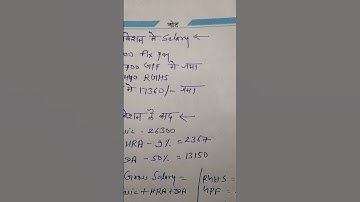 नोट
वेशन से Salary ←
00 fix pay
700 GPF में जमा
440 RGHS
में 17360/- जमा
वेशन के बाद
sic = 26300
HRA - 9% = 2367
DA - 50% = 13150
Gross Salary =
sic + HRA + DA
RGHS =
GPF =